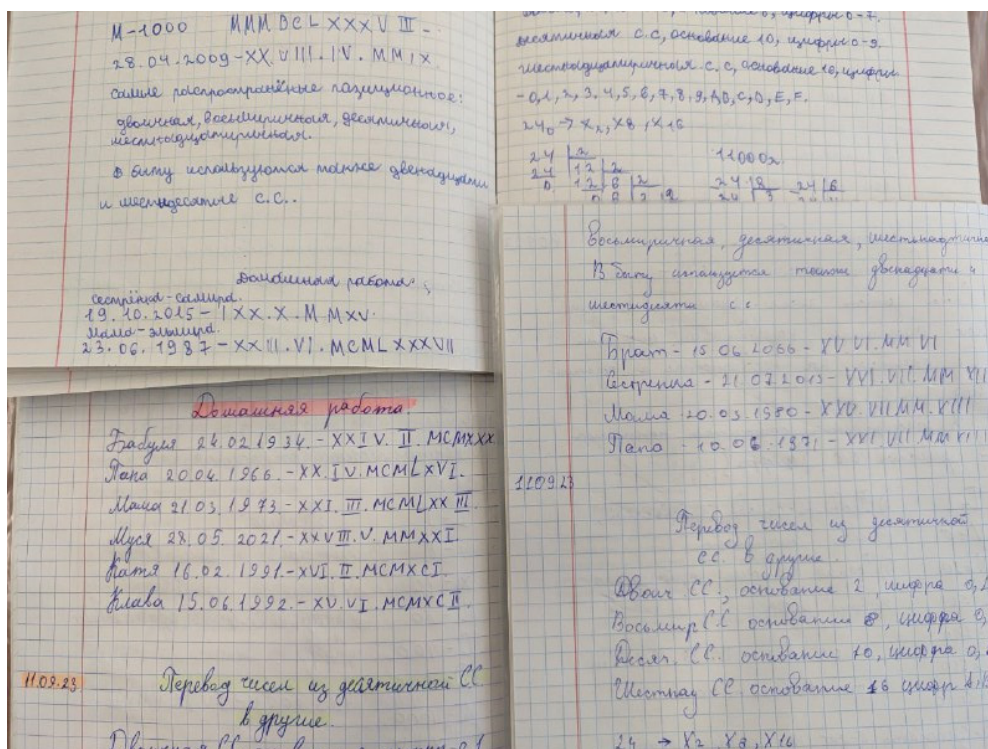 М-1000 MMMDCLXXXVIII-
28.04.2009-XXVIII.IV.MMIX
самые распространённые пазиционное:
двоичная, восьмиричная, десятичная,
В быту используются также двенадцати
и шестидесятые С.С..
Домашняя работа:
сестрёнка-самира.
19.10.2015-IXX.X.MMXV.
мама-эльмира.
23.06.1987-XXIII.VI.MCMLXXXVII
цифры 0-7.
десятичная С.С, основание 10, цифры 0-9.
шестнадцатиричная С.С, основание 16, цифры
-0,1,2,3,4,5,6,7,8,9,A,B,C,D,E,F.
24₁₀→X₂,X8,X16
24 2 11000₂
24 12 2
0 12 6 2 24 8 24 6
Домашняя работа
Бабуля 24.02.1934.-XXIV.II.MCMXXX
Папа 20.04.1966.-XX.IV.MCMLXVI.
Мама 21.03.1973.-XXI.III.MCMLXXIII.
Муся 28.05.2021.-XXVIII.V.MMXXI.
Катя 16.02.1991.-XVI.II.MCMXCI.
Клава 15.06.1992.-XV.VI.MCMXCII.
11.09.23 Перевод чисел из десятичной СС
в другие.
Восьмиричная, десятичная,
В быту используется также двенадцати и
шестидесяти с с.
Брат-15.06.2066-XV VI.MM VI
Сестренка-21.07.2013-XVI.VII.MM XII
Мама 20.03.1980-XXV.VII MM.VIII
Папа-10.06.1971-XVI.VII MM VIII
11.09.23
Перевод чисел из десятичной
СС. в другие.
Двоич СС., основание 2, цифра 0,1
Восьмир СС основание 8, цифра 0,
Десяч. СС. основание 10, цифра 0,
Шестнац СС основание 16 цифр
24 → X2, X8, X16